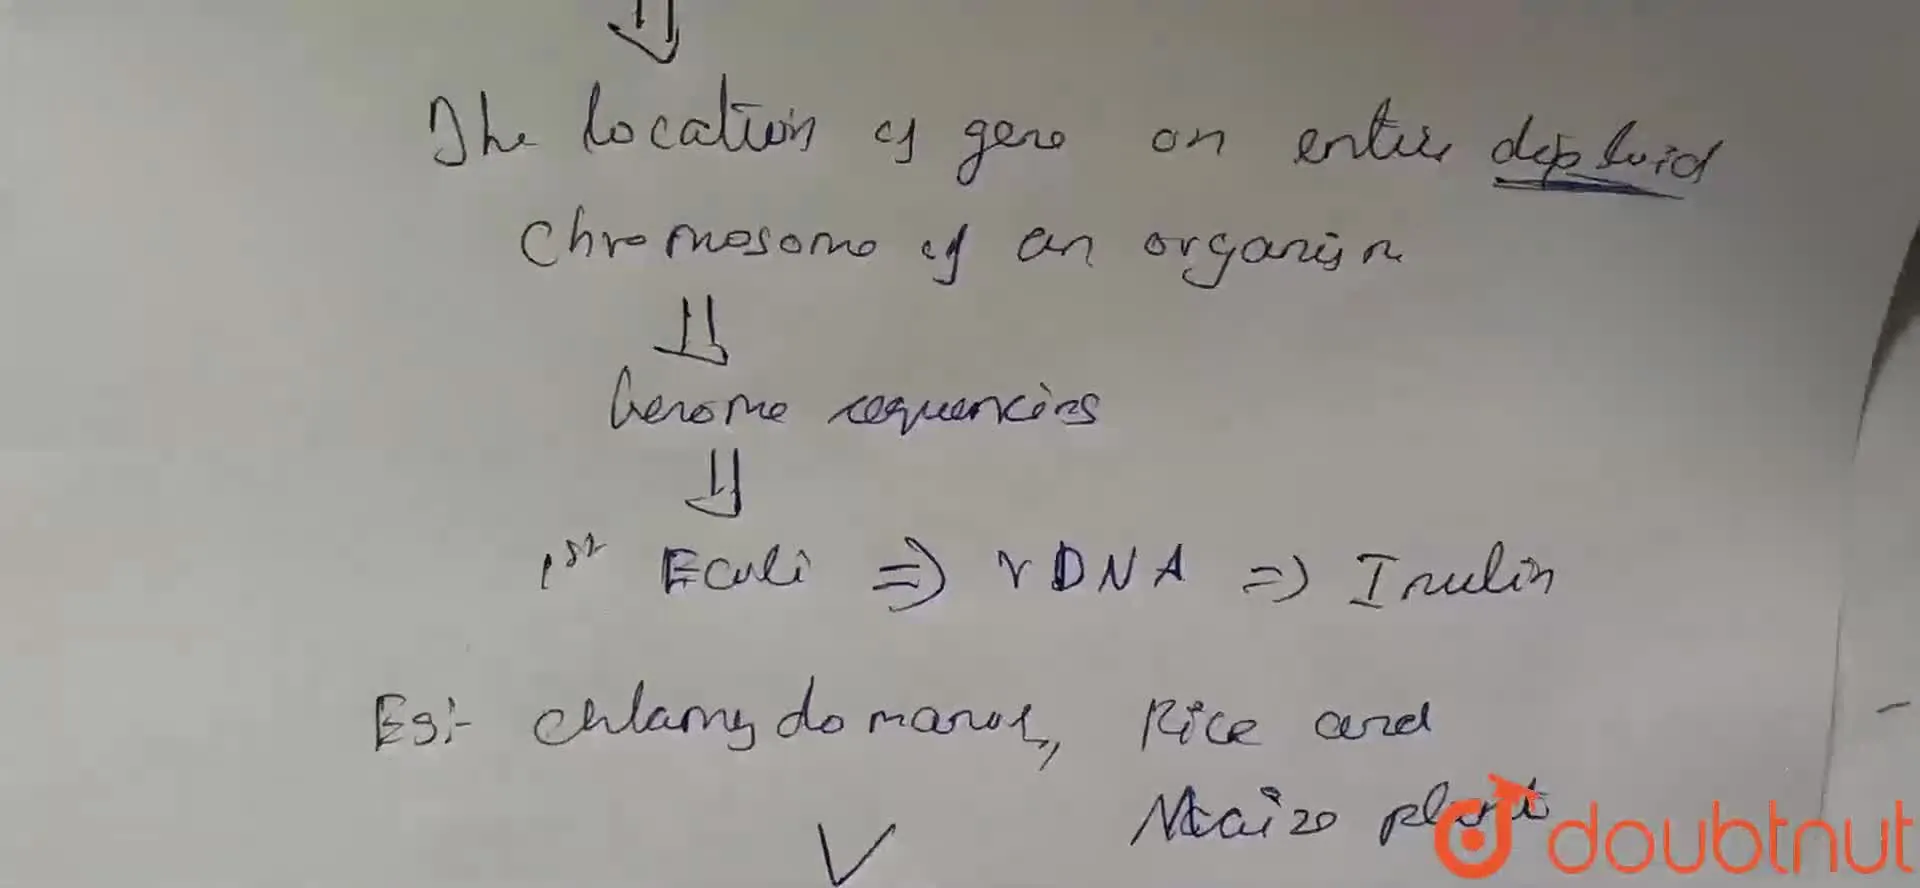 The location of gene on entire diploid
chromosome of an organism
Genome sequencing
1st Ecoli => rDNA => Inulin
Eg:- chlamydomanos, Rice and
Maize plant
doubtnut